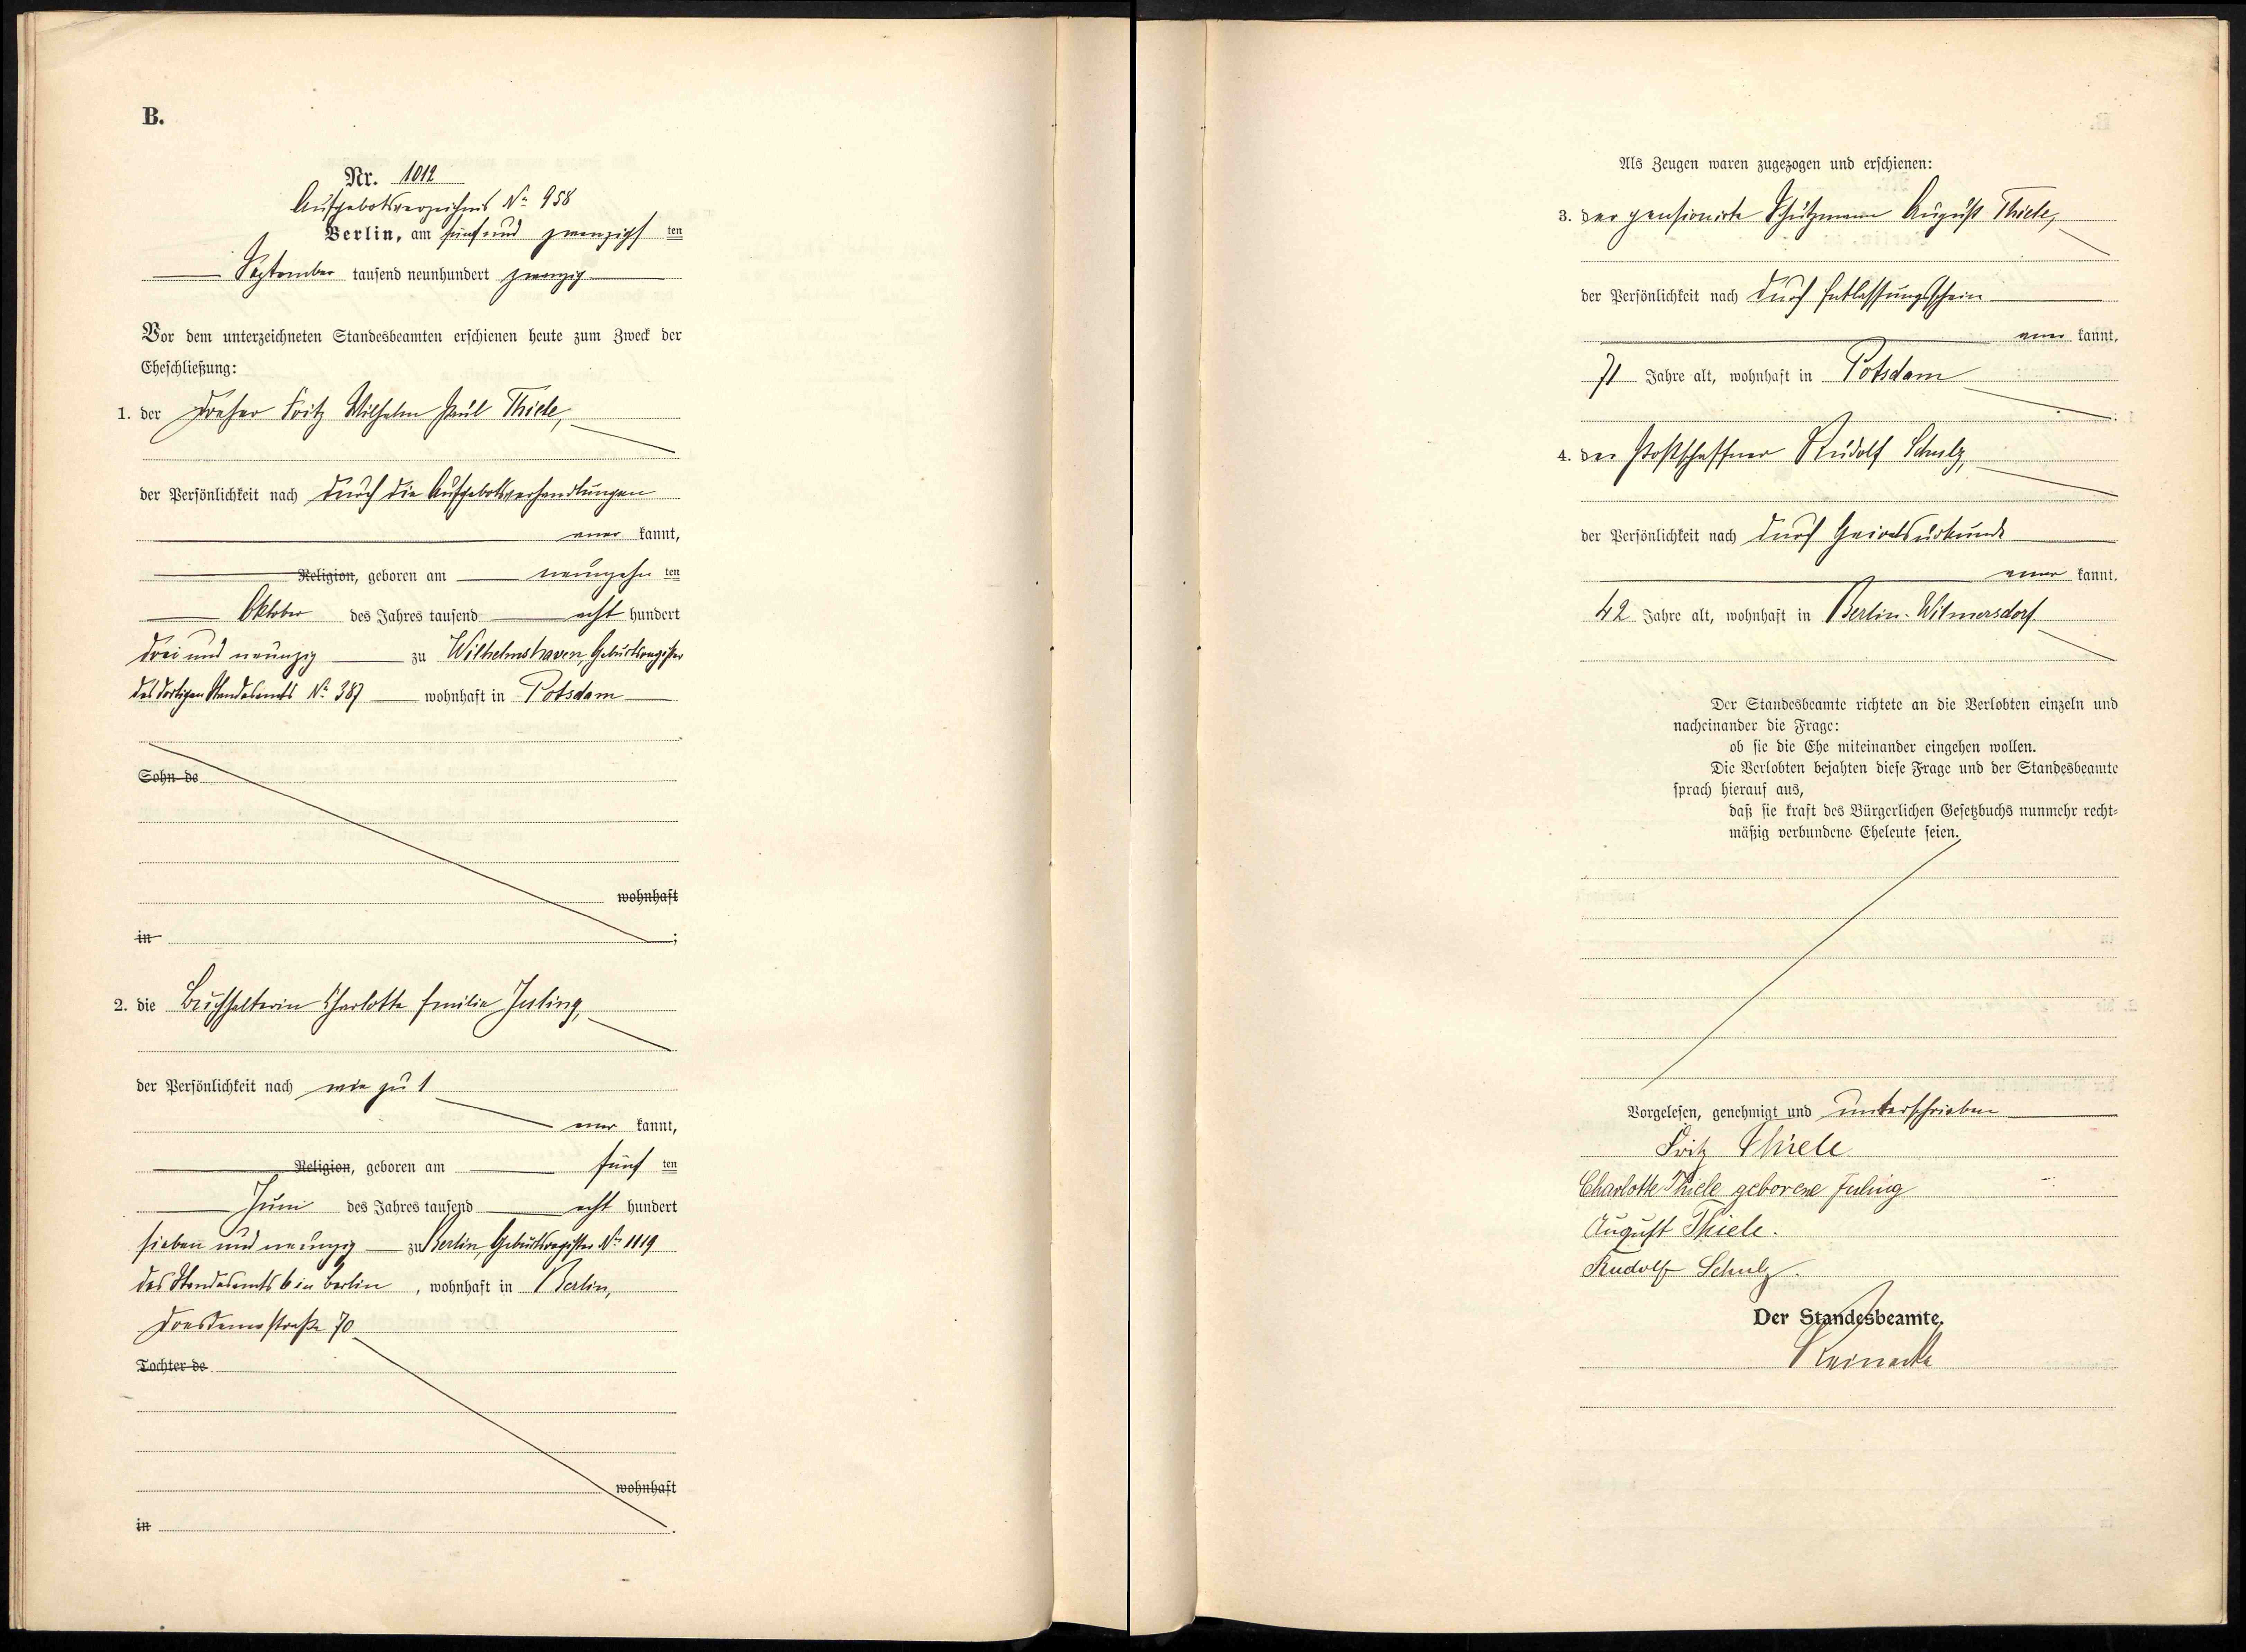 B.
Nr. 1012
Aufgebotsverzeichnis № 958
Berlin, am fünfund zwanzigs ten
September tausend neunhundert zwanzig
Vor dem unterzeichneten Standesbeamten erschienen heute zum Zweck der
Eheschließung:
1. der Dreher Fritz Wilhelm Paul Thiele,
der Persönlichkeit nach durch die Aufgebotsverhandlungen
aner kannt,
Religion, geboren am neunzehn ten
Oktober des Jahres tausend acht hundert
drei und neunzig zu Wilhelmshaven, Geburtsregister
des dortigen Standesamts № 387 wohnhaft in Potsdam
Sohn de
wohnhaft
in ;
2. die Buchhalterin Charlotte Emilie Juling,
der Persönlichkeit nach wie zu 1
aner kannt,
Religion, geboren am fünf ten
Juni des Jahres tausend acht hundert
sieben und neunzig zu Berlin, Geburtsregister № 1119
des Standesamts 6 in Berlin , wohnhaft in Berlin,
Dresdenerstraße 70
Tochter de
wohnhaft
in .
Als Zeugen waren zugezogen und erschienen:
3. der pensionirte Schutzmann August Thiele,
der Persönlichkeit nach durch Entlassungsschein
aner kannt,
71 Jahre alt, wohnhaft in Potsdam
4. der Postschaffner Rudolf Schulz,
der Persönlichkeit nach durch Heiratsurkunde
aner kannt,
42 Jahre alt, wohnhaft in Berlin-Wilmersdorf.
Der Standesbeamte richtete an die Verlobten einzeln und
nacheinander die Frage:
ob sie die Ehe miteinander eingehen wollen.
Die Verlobten bejahten diese Frage und der Standesbeamte
sprach hierauf aus,
daß sie kraft des Bürgerlichen Gesetzbuchs nunmehr recht-
mäßig verbundene Eheleute seien.
Vorgelesen, genehmigt und unterschrieben
Fritz Thiele
Charlotte Thiele geborene Juling
August Thiele.
Rudolf Schulz.
Der Standesbeamte.
Reinecke